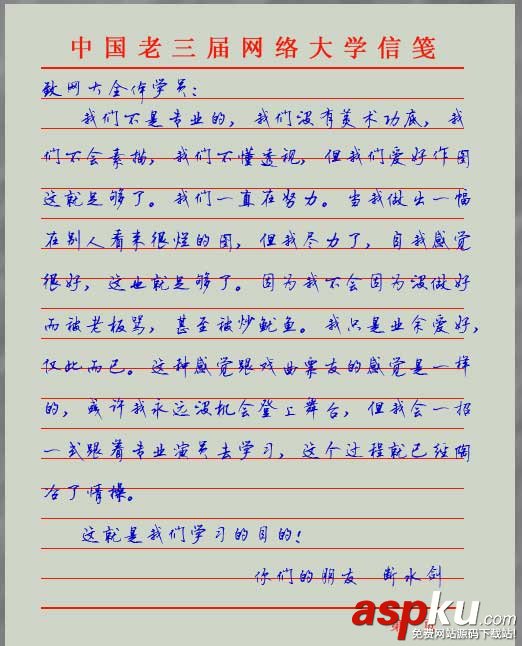 中国老三届网络大学信笺
致网大全体学员：
我们不是专业的，我们没有美术功底，我
们不会素描，我们不懂透视，但我们爱好作图
这就足够了。我们一直在努力。当我做出一幅
在别人看来很烂的图，但我尽力了，自我感觉
很好，这也就足够了。因为我不会因为没做好
而被老板骂，甚至被炒鱿鱼。我只是业余爱好，
仅此而已。这种感觉跟戏曲票友的感觉是一样
的，或许我永远没机会登上舞台，但我会一招
一式跟着专业演员去学习，这个过程就已经陶
冶了情操。
这就是我们学习的目的！
你们的朋友 断水剑
aspku.com
免费网站源码下载站!